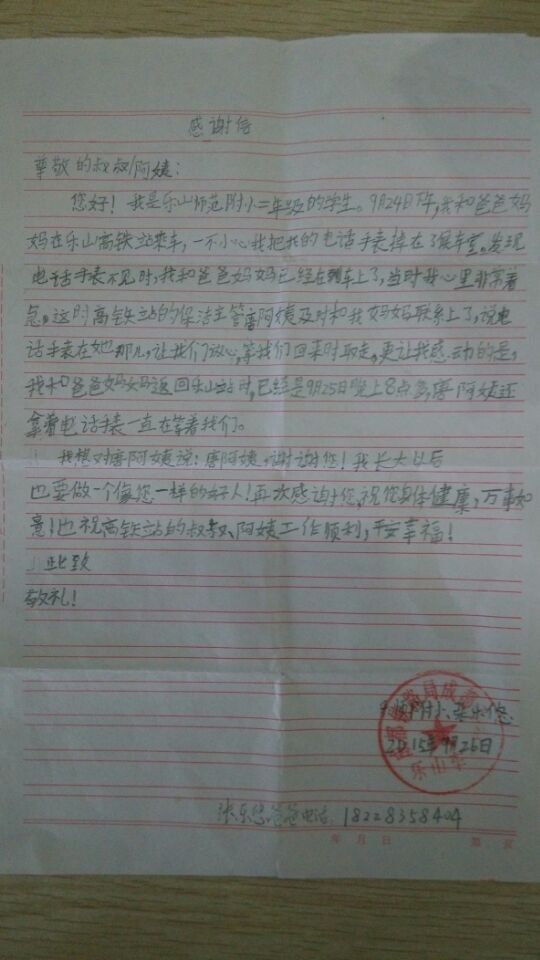 感谢信
尊敬的叔叔/阿姨：
您好！我是乐山师范附小二年级的学生。9月24日下午，我和爸爸妈
妈在乐山高铁站乘车，一不小心我把我的电话手表掉在了候车室。发现
电话手表不见时，我和爸爸妈妈已经在列车上了，当时我心里非常着
急。这时高铁站的保洁主管唐阿姨及时和我妈妈联系上了，说电
话手表在她那儿，让我们放心，等我们回来时取走。更让我感动的是，
我和爸爸妈妈返回乐山站时，已经是9月25日晚上8点多，唐阿姨还
拿着电话手表一直在等着我们。
我想对唐阿姨说：唐阿姨，谢谢您！我长大以后
也要做一个像您一样的好人！再次感谢您，祝您身体健康，万事如
意！也祝高铁站的叔叔、阿姨工作顺利，平安幸福！
此致
敬礼！
附小 张乐悠
2015年9月26日
局成
乐山
张乐悠爸爸电话：18228358404
年 月 日 第 页